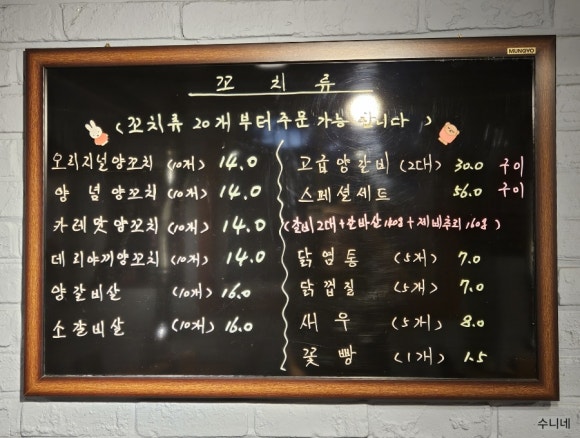 MUNGYO
꼬 치 류
(꼬치류 20개 부터 주문 가능 합니다)
오리지널양꼬치 (10개) 14.0
양 념 양꼬치 (10개) 14.0
카레맛양꼬치 (10개) 14.0
데리야끼양꼬치 (10개) 14.0
양갈비살 (10개) 16.0
소갈비살 (10개) 16.0
고급양갈비 (2대) 30.0 구이
스페셜세트 56.0 구이
(갈비2대+갈바살140g+제비추리160g)
닭염통 (5개) 7.0
닭껍질 (5개) 7.0
새 우 (5개) 8.0
꽃 빵 (1개) 1.5
수니네